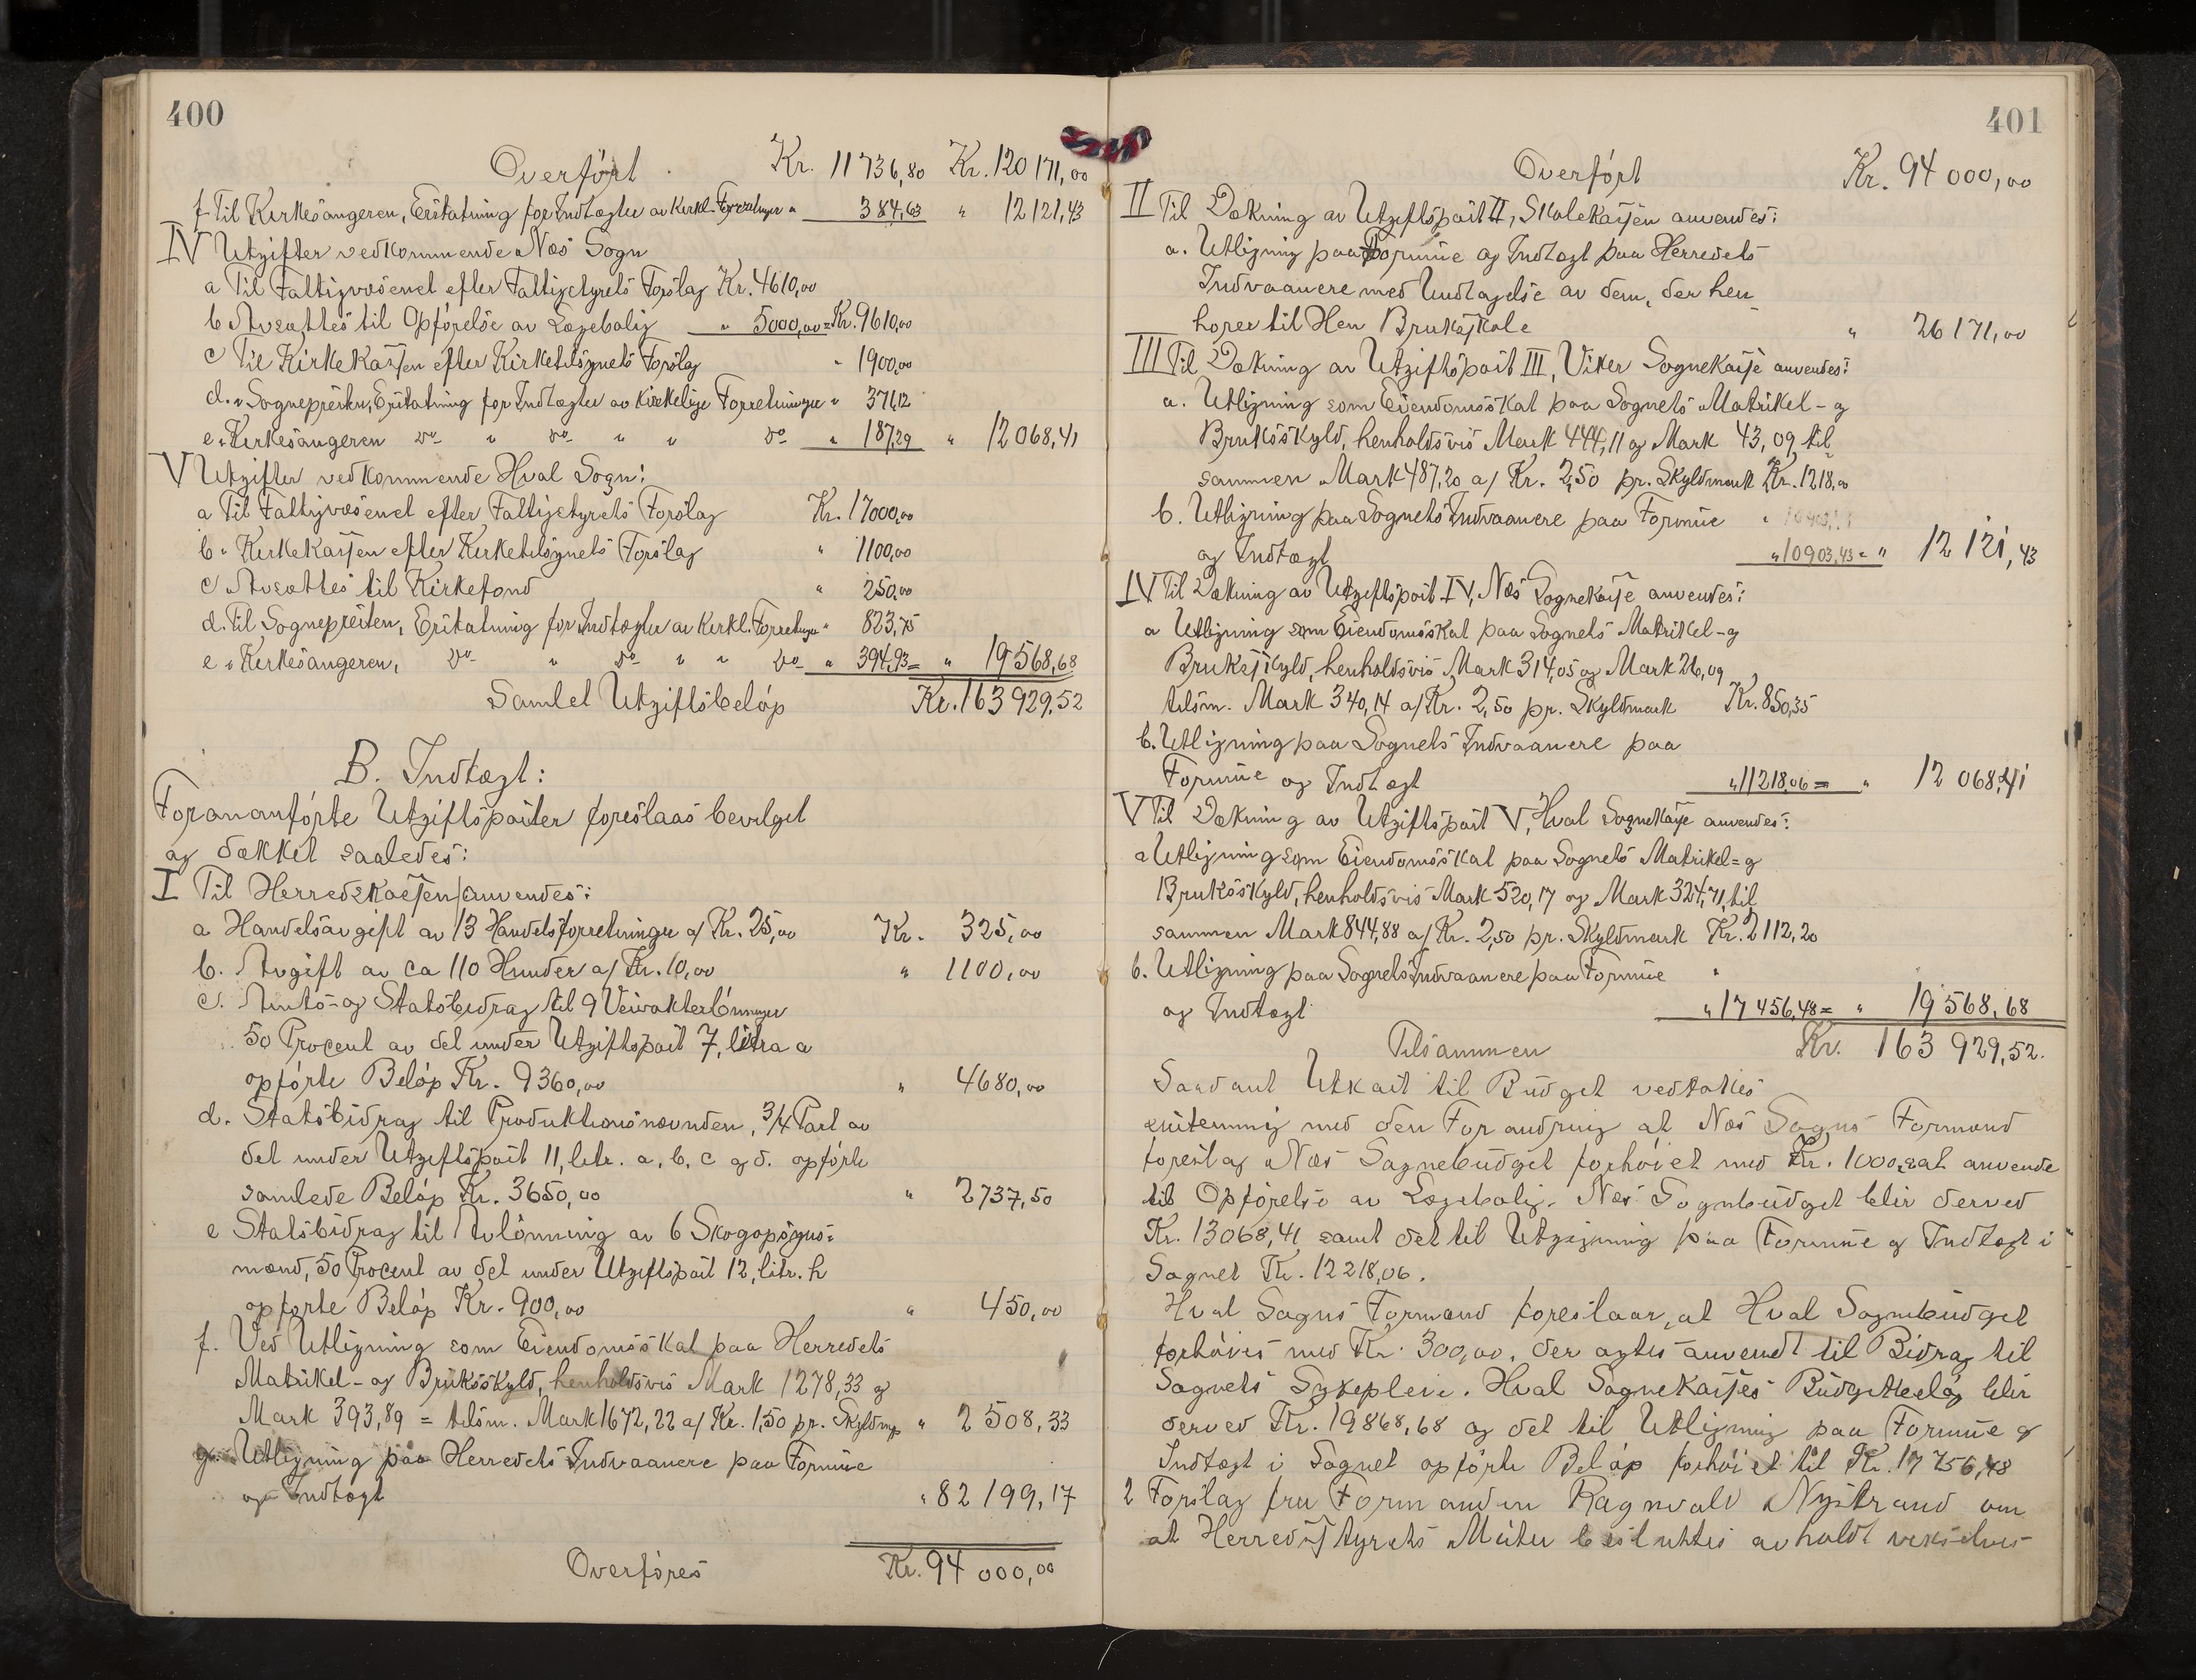 400
Overført Kr. 11736,80 Kr. 120171,00
f Til Kirkesangeren, Erstatning for Indtægter av Kirkl. Forretninger " 384,63 " 12121,43
IV Utgifter vedkommende Næs Sogn
a Til Fattigvæsenet efter Fattigstyrets Forslag Kr. 4610,00
b Avsættes til Opførelse av Lægebolig " 5000,00 = Kr. 9610,00
c Til Kirkekassen efter Kirketilsynets Forslag " 1900,00
d. " Sognepresten, Erstatning for Indtægter av kirkelige Forretninger " 371,12
e " Kirkesangeren do " do " " do " 187,29 " 12068,41
V Utgifter vedkommende Hval Sogn:
a Til Fattigvæsenet efter Fattigstyrets Forslag Kr. 17000,00
b " Kirkekassen efter Kirketilsynets Forslag " 1100,00
c Avsættes til Kirkefond " 250,00
d. Til Sognepresten, Erstatning for Indtægter av Kirkl. Forretninger " 823,75
e " Kirkesangeren, do " do " " do " 394,93 = " 19568,68
Samlet Utgiftsbeløp Kr. 163929,52
B. Indtægt:
Forananførte Utgiftsposter foreslaas bevilget
og dækket saaledes:
I Til Herredskassen anvendes:
a Handelsavgift av 13 Handelsforretninger a/ Kr. 25,00 Kr. 325,00
b. Avgift av ca 110 Hunder a/ Kr. 10,00 " 1100,00
c. Amts- og Statsbidrag til 9 Veivokterlønninger
50 Procent av det under Utgiftspost 7, litra a
opførte Beløp Kr. 9360,00 " 4680,00
d. Statsbidrag til Produktionsnævnden, 3/4 Part av
det under Utgiftspost 11, litr. a, b, c og d. opførte
samlede Beløp Kr. 3650,00 " 2737,50
e Statsbidrag til Avlønning av 6 Skogopsyns=
mænd, 50 Procent av det under Utgiftspost 12, litr. h
opførte Beløp Kr. 900,00 " 450,00
f. Ved Utligning som Eiendomsskat paa Herredets
Matrikel- og Bruksskyld, henholdsvis Mark 1278,33 og
Mark 393,89 = tilsm. Mark 1672,22 a/ Kr. 1,50 pr. Skyldmp " 2508,33
g. Utligning paa Herredets Indvaanere paa Formue
og Indtægt " 82199,17
Overføres Kr. 94000,00
401
Overført Kr. 94000,00
II Til Dækning av Utgiftspost II, Skolekassen anvendes:
a. Utligning paa Formue og Indtægt paa Herredets
Indvaanere med Undtagelse av dem, der hen
hører til Hen Bruksskole " 26171,00
III Til Dækning av Utgiftspost III, Viker Sognekasse anvendes:
a. Utligning som Eiendomsskat paa Sognets Matrikel- og
Bruksskyld, henholdsvis Mark 444,11 og Mark 43,09, til
sammen Mark 487,20 a/ Kr. 2,50 pr. Skyldmark Kr. 1218,00
b. Utligning paa Sognets Indvaanere paa Formue "
og Indtægt " 10903,43 = " 12121,43
IV Til Dækning av Utgiftspost IV, Næs Sognekasse anvendes:
a Utligning som Eiendomsskat paa Sognets Matrikel- og
Bruksskyld, henholdsvis Mark 314,05 og Mark 26,09
tilsm. Mark 340,14 a/ Kr. 2,50 pr. Skyldmark Kr. 850,35
b. Utligning paa Sognets Indvaanere paa
Formue og Indtægt " 11218,06 = " 12068,41
V Til Dækning av Utgiftspost V, Hval Sognekasse anvendes:
a Utligning som Eiendomsskat paa Sognets Matrikel= og
Bruksskyld, henholdsvis Mark 520,17 og Mark 324,71, til
sammen Mark 844,88 a/ Kr. 2,50 pr. Skyldmark Kr. 2112,20
b. Utligning paa Sognets Indvaanere paa Formue "
og Indtægt " 17456,48 = " 19568,68
Tilsammen Kr. 163929,52.
Saadant Utkast til Budget vedtokes
enstemmig med den Forandring at Næs Sogns Formand
foreslog Næs Sognebudget forhøiet med Kr. 1000, at anvende
til Opførelse av Lægebolig. Næs Sognebudget blir derved
Kr. 13068,41 samt det til Utligning paa Formue og Indtægt i
Sognet Kr. 12218,06.
Hval Sogns Formand foreslaar, at Hval Sognebudget
forhøies med Kr. 300,00, der agtes anvendt til Bidrag til
Sognets Sykepleie. Hval Sognekasses Budgetbeløp blir
derved Kr. 19868,68 og det til Utligning paa Formue og
Indtægt i Sognet opførte Beløp forhøiet til Kr. 17756,48
2 Forslag fra Formanden Ragnvald Nystrand om
at Herredsstyrets Møter besluttes avholdt vekselvis